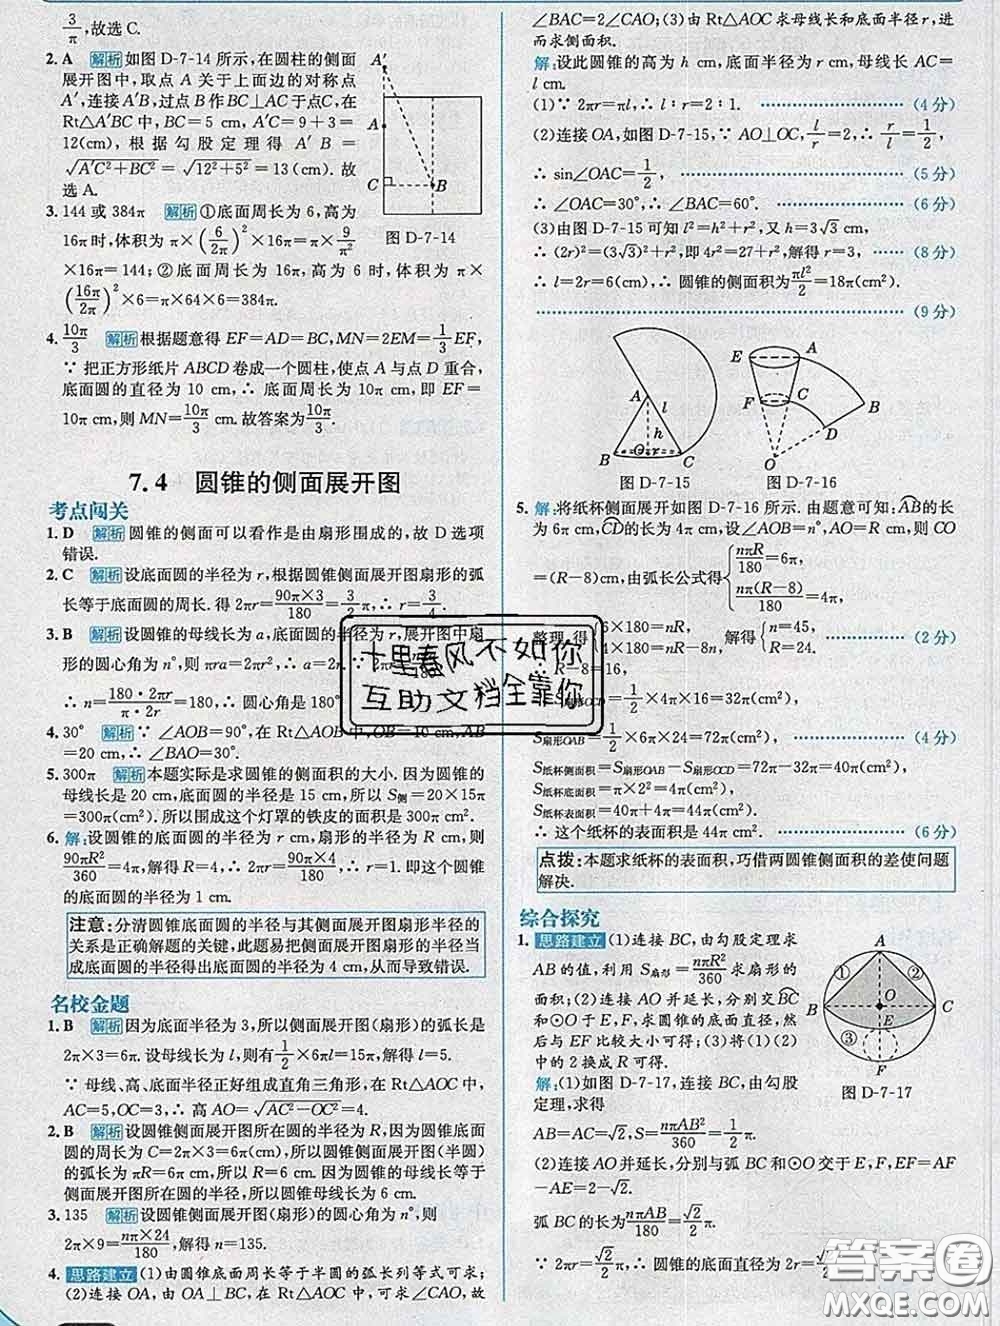 3/π,故选C.
2. A 解析 如图 D-7-14 所示,在圆柱的侧面
展开图中,取点 A 关于上面边的对称点
A′,连接 A′B,过点 B 作 BC⊥AC 于点C,在
Rt△A′BC 中,BC=5 cm,A′C=9+3=
12(cm),根据勾股定理得 A′B=
√(A′C²+BC²)=√(12²+5²)=13(cm).故
选 A.
A′
A
C
B
图 D-7-14
3. 144 或 384π 解析 ①底面周长为 6,高为
16π时,体积为 π×(6/2π)²×16π=π×9/π²
×16π=144;②底面周长为 16π,高为 6 时,体积为 π×
(16π/2π)²×6=π×64×6=384π.
4. 10π/3 解析 根据题意得 EF=AD=BC,MN=2EM=1/3EF,
∵ 把正方形纸片 ABCD 卷成一个圆柱,使点 A 与点 D 重合,
底面圆的直径为 10 cm,∴ 底面周长为 10π cm,即 EF=
10π cm,则 MN=10π/3 cm.故答案为10π/3.
7.4 圆锥的侧面展开图
考点闯关
1. D 解析 圆锥的侧面可以看作是由扇形围成的,故 D 选项
错误.
2. C 解析 设底面圆的半径为 r,根据圆锥侧面展开图扇形的弧
长等于底面圆的周长.得 2πr=90π×3/180=3/2π,∴ r=3/4.
3. B 解析 设圆锥的母线长为 a,底面圆的半径为 r,展开图中扇
形的圆心角为 n°,则 πra=2πr²,∴ a=2r.
∴ n=180·2πr/π·2r=180,∴ 圆心角为 180°.
4. 30° 解析 ∵ ∠AOB=90°,在 Rt△AOB 中,OB=10 cm,AB
=20 cm,∴ ∠BAO=30°.
5. 300π 解析 本题实际是求圆锥的侧面积的大小.因为圆锥的
母线长是 20 cm,底面半径是 15 cm,所以 S侧=20×15π
=300π(cm²).所以围成这个灯罩的铁皮的面积是 300π cm².
6. 解:设圆锥的底面圆的半径为 r cm,扇形的半径为 R cm,则
90πR²/360=4π,解得 R=4,∴ 2πr=90π×4/180,∴ r=1.即这个圆锥
的底面圆的半径为 1 cm.
注意:分清圆锥底面圆的半径与其侧面展开图扇形半径的
关系是正确解题的关键,此题易把侧面展开图扇形的半径当
成底面圆的半径得出底面圆的半径为 4 cm,从而导致错误.
名校金题
1. B 解析 因为底面半径为 3,所以侧面展开图(扇形)的弧长是
2π×3=6π.设母线长为 l,则有1/2×6πl=15π,解得 l=5.
∵ 母线、高、底面半径正好组成直角三角形,在 Rt△AOC 中,
AC=5,OC=3,∴ 高 AO=√(AC²-OC²)=4.
2. B 解析 设圆锥侧面展开图所在圆的半径为 R,因为圆锥底面
圆的周长为 C=2π×3=6π(cm),所以侧面展开图(半圆)
的弧长为 πR=6π cm,所以 R=6 cm.因为圆锥的母线长等于
侧面展开图所在圆的半径,所以圆锥的母线长为 6 cm.
3. 135 解析 设圆锥侧面展开图(扇形)的圆心角为 n°,则
2π×9=nπ×24/180,解得 n=135.
4. 思路建立 (1)由圆锥底面周长等于半圆的弧长列等式可求;
(2)连接 OA,由 OA⊥BC,在 Rt△AOC 中,可求∠CAO,故
∠BAC=2∠CAO;(3)由 Rt△AOC 求母线长和底面半径 r,进
而求侧面积.
解:设此圆锥的高为 h cm,底面半径为 r cm,母线长 AC=
l cm.
(1)∵ 2πr=πl,∴ l∶r=2∶1. (4 分)
(2)连接 OA,如图 D-7-15,∵ AO⊥OC,l/r=2,∴ r/l=1/2,
∴ sin∠OAC=1/2, (5 分)
∴ ∠OAC=30°,∴ ∠BAC=60°. (6 分)
(3)由图 D-7-15 可知 l²=h²+r²,又 h=3√3 cm,
∴ (2r)²=(3√3)²+r²,即 4r²=27+r²,解得 r=3, (8 分)
∴ l=2r=6(cm),∴ 圆锥的侧面积为πl²/2=18π(cm²).
(9 分)
A
l
h
B
O
r
C
图 D-7-15
E
A
F
C
B
D
O
图 D-7-16
5. 解:将纸杯侧面展开如图 D-7-16 所示.由题意可知:AB的长
为 6π cm,CD的长为 4π cm,设∠AOB=n°,AO=R cm,则 CO
=(R-8)cm,由弧长公式得{nπR/180=6π, nπ(R-8)/180=4π,
整理,得{6×180=nR, 4×180=nR-8n, 解得{n=45, R=24. (2 分)
∴ R-8=16,
S扇形OCD=1/2×4π×16=32π(cm²),
S扇形OAB=1/2×6π×24=72π(cm²), (4 分)
S纸杯侧面积=S扇形OAB-S扇形OCD=72π-32π=40π(cm²),
S纸杯底面积=π×2²=4π(cm²),
S纸杯表面积=40π+4π=44π(cm²).
∴ 这个纸杯的表面积是 44π cm². (6 分)
点拨:本题求纸杯的表面积,巧借两圆锥侧面积的差使问题
解决.
综合探究
1. 思路建立 (1)连接 BC,由勾股定理求
AB 的值,利用 S扇形=nπR²/360求扇形的
面积;(2)连接 AO并延长,分别交BC
和⊙O于 E,F,求圆锥的底面直径,然
后与 EF 比较大小可得;(3)将(1)(2)
中的 2 换成 R 可得.
解:(1)如图 D-7-17,连接 BC,由勾股
定理,求得
AB=AC=√2,S=nπAB²/360=1/2π.
A
①
②
O
B
C
E
③
F
图 D-7-17
(2)连接 AO 并延长,分别与弧 BC 和⊙O交于 E,F,EF=AF
-AE=2-√2,
弧 BC 的长为nπAB/180=√2/2π.
∵ 2πr=√2/2π,
十里春风不如你
互助文档全靠你
答案圈
MXQE.COM